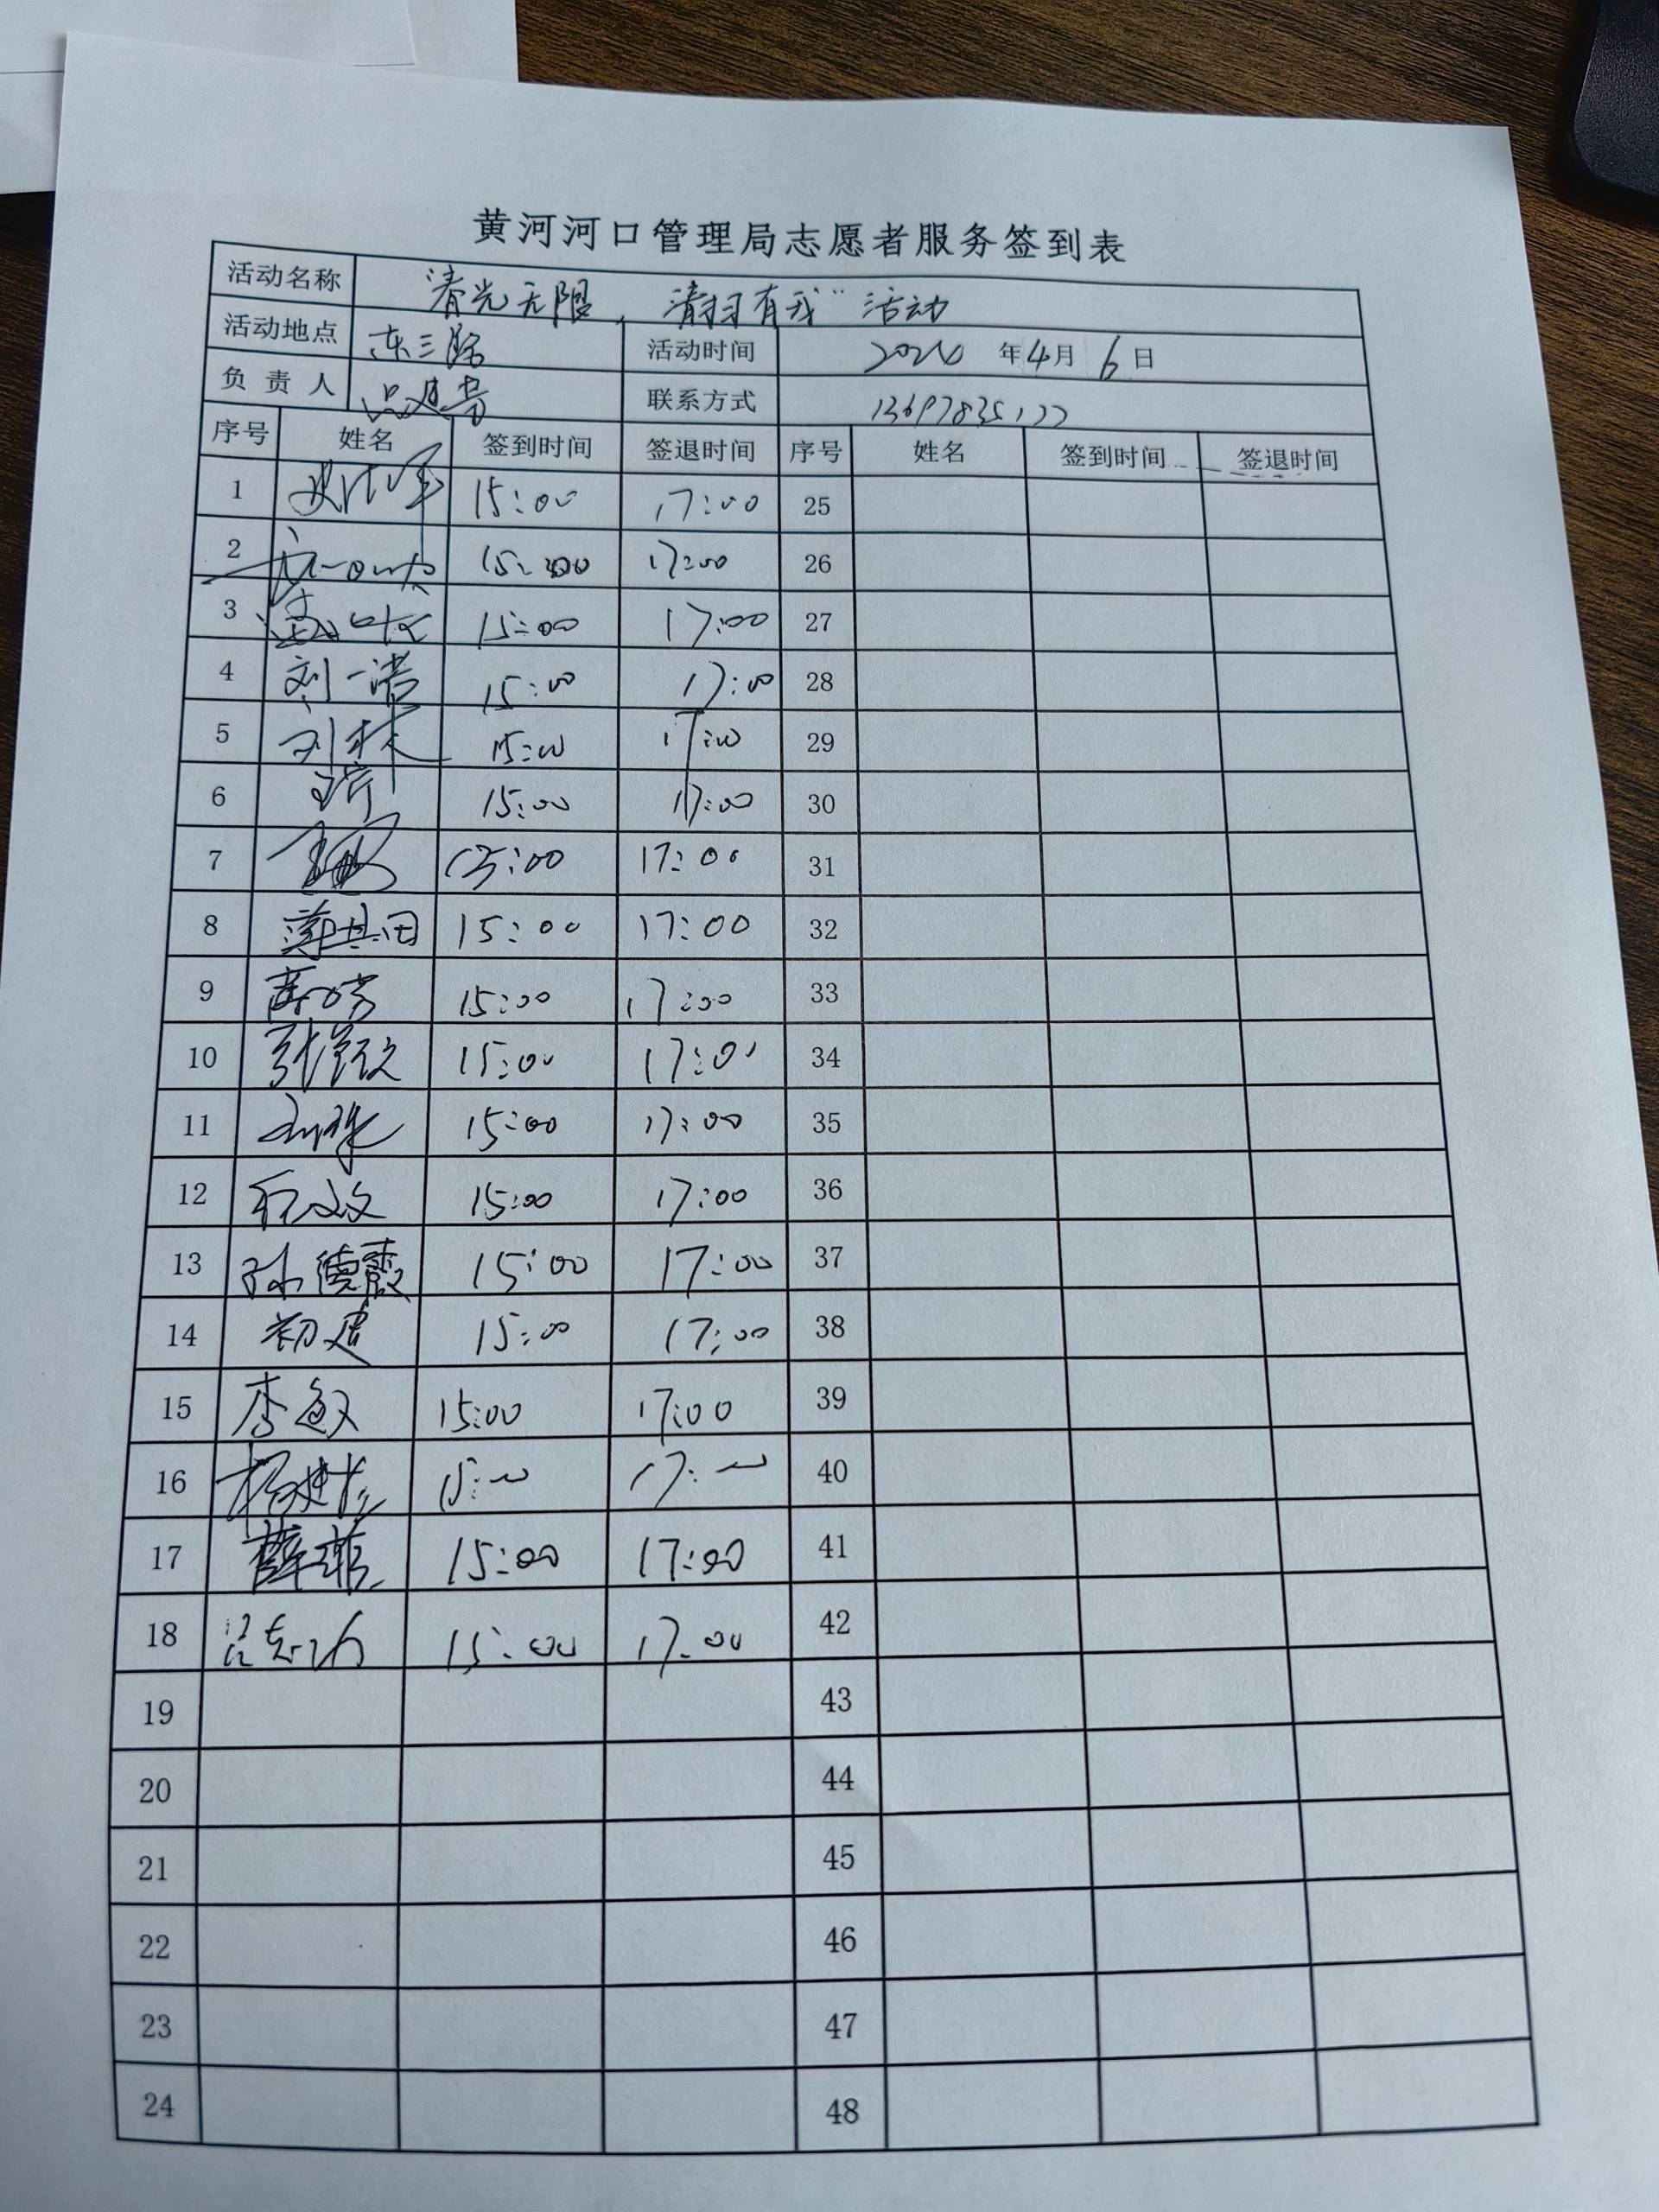 黄河河口管理局志愿者服务签到表
活动名称 春光无限，清扫有我"活动
活动地点 东三路 活动时间 年4月6日
负责人 联系方式
序号 姓名 签到时间 签退时间 序号 姓名 签到时间 签退时间
1 15:00 17:00 25
2 15:00 17:00 26
3 15:00 17:00 27
4 刘一浩 15:00 17:00 28
5 刘林 15:00 17:00 29
6 15:00 17:00 30
7 15:00 17:00 31
8 薄其田 15:00 17:00 32
9 15:00 17:00 33
10 15:00 17:00 34
11 15:00 17:00 35
12 15:00 17:00 36
13 孙德霞 15:00 17:00 37
14 初建 15:00 17:00 38
15 李敏 15:00 17:00 39
16 15:00 17:00 40
17 薛菲 15:00 17:00 41
18 15:00 17:00 42
19 43
20 44
21 45
22 46
23 47
24 48